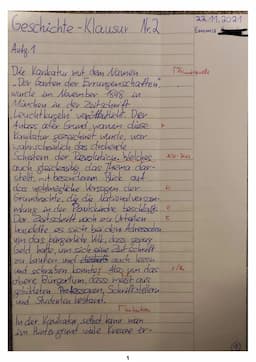 Geschichte-Klausur Nr.2
22.11.2021
Aufg. 1
Die Karikatur mit dem Namen
"Der Garten der Errungenschaften"
wurde im November 1848 in
München in der Zeitschrift
Leuchtkugeln veröffentlicht. Der
Anlass oder Grund, warum diese
Karikatur gezeichnet wurde, war
wahrscheinlich das drohende
Scheitern der Revolution, welches
auch gleichzeitig das Thema dar-
stellt, mit besonderem Blick auf
das Versagen der
Grundrechte, die die Nationalversam-
mlung in der Paulskirche beschließt.
Der Zeitschrift nach zu Urteilen
handelte es sich bei den Adressaten
um das bürgerliche Volk, dass genug
Geld hatte, um sich eine Zeitschrift
zu kaufen und auch lesen
und schreiben konnte. Also, um das
obere Bürgertum, dass meist aus
gebildeten Professoren, Schriftstellern
und Studenten bestand.
In der Karikatur selbst kann man
im Hintergrund viele Kreuze er-
1